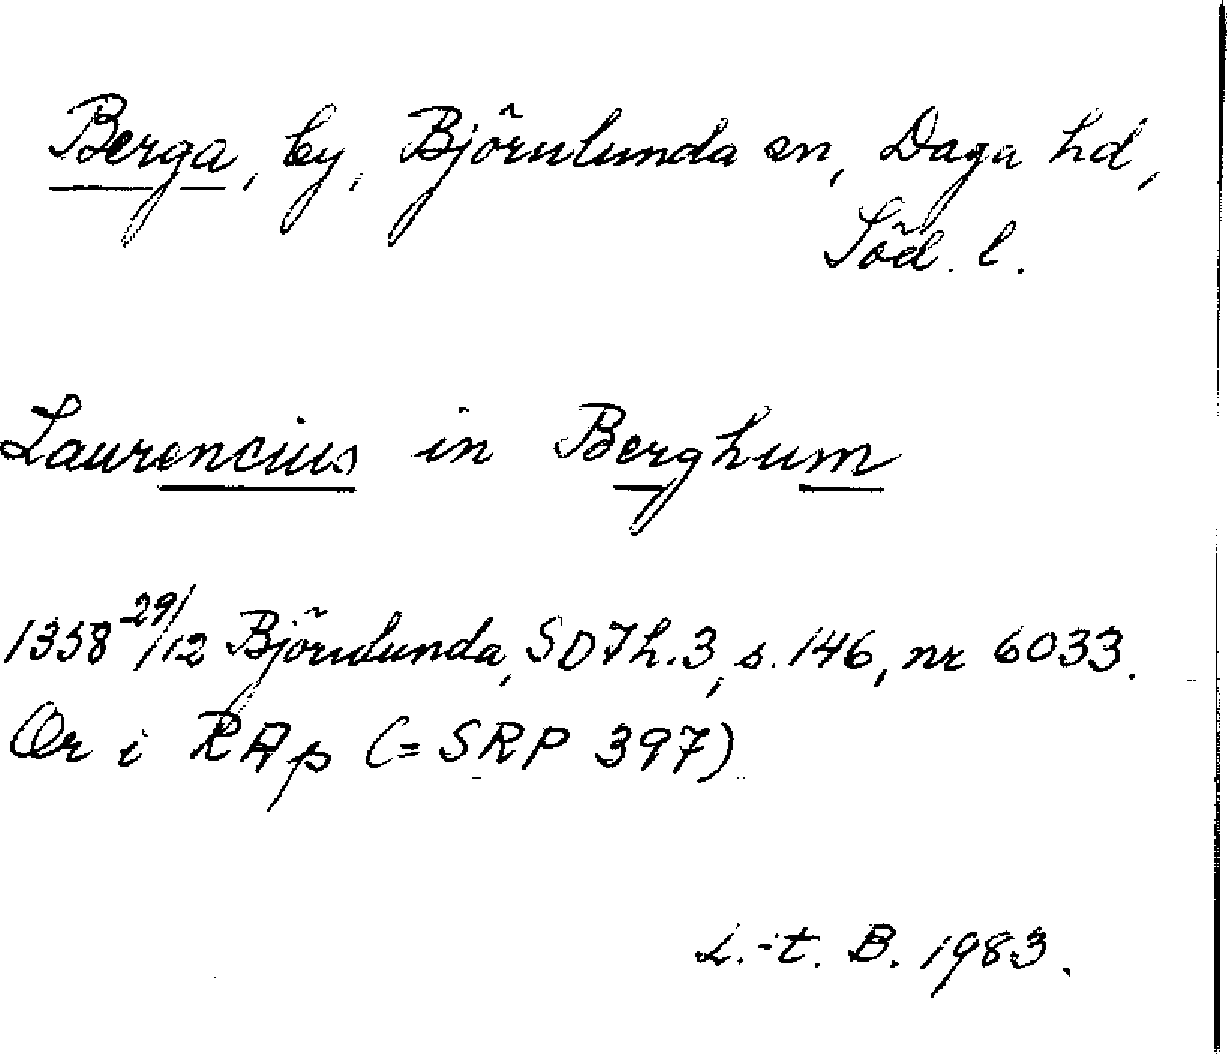 Berga, by, Björnlunda sn, Daga hd,
Söd. l.
Laurencius in Berghum
1358 29/12 Björnlunda, SD 7 h. 3, s. 146, nr 6033.
Or i RAp (= SRP 397)
L.-t. B. 1983.